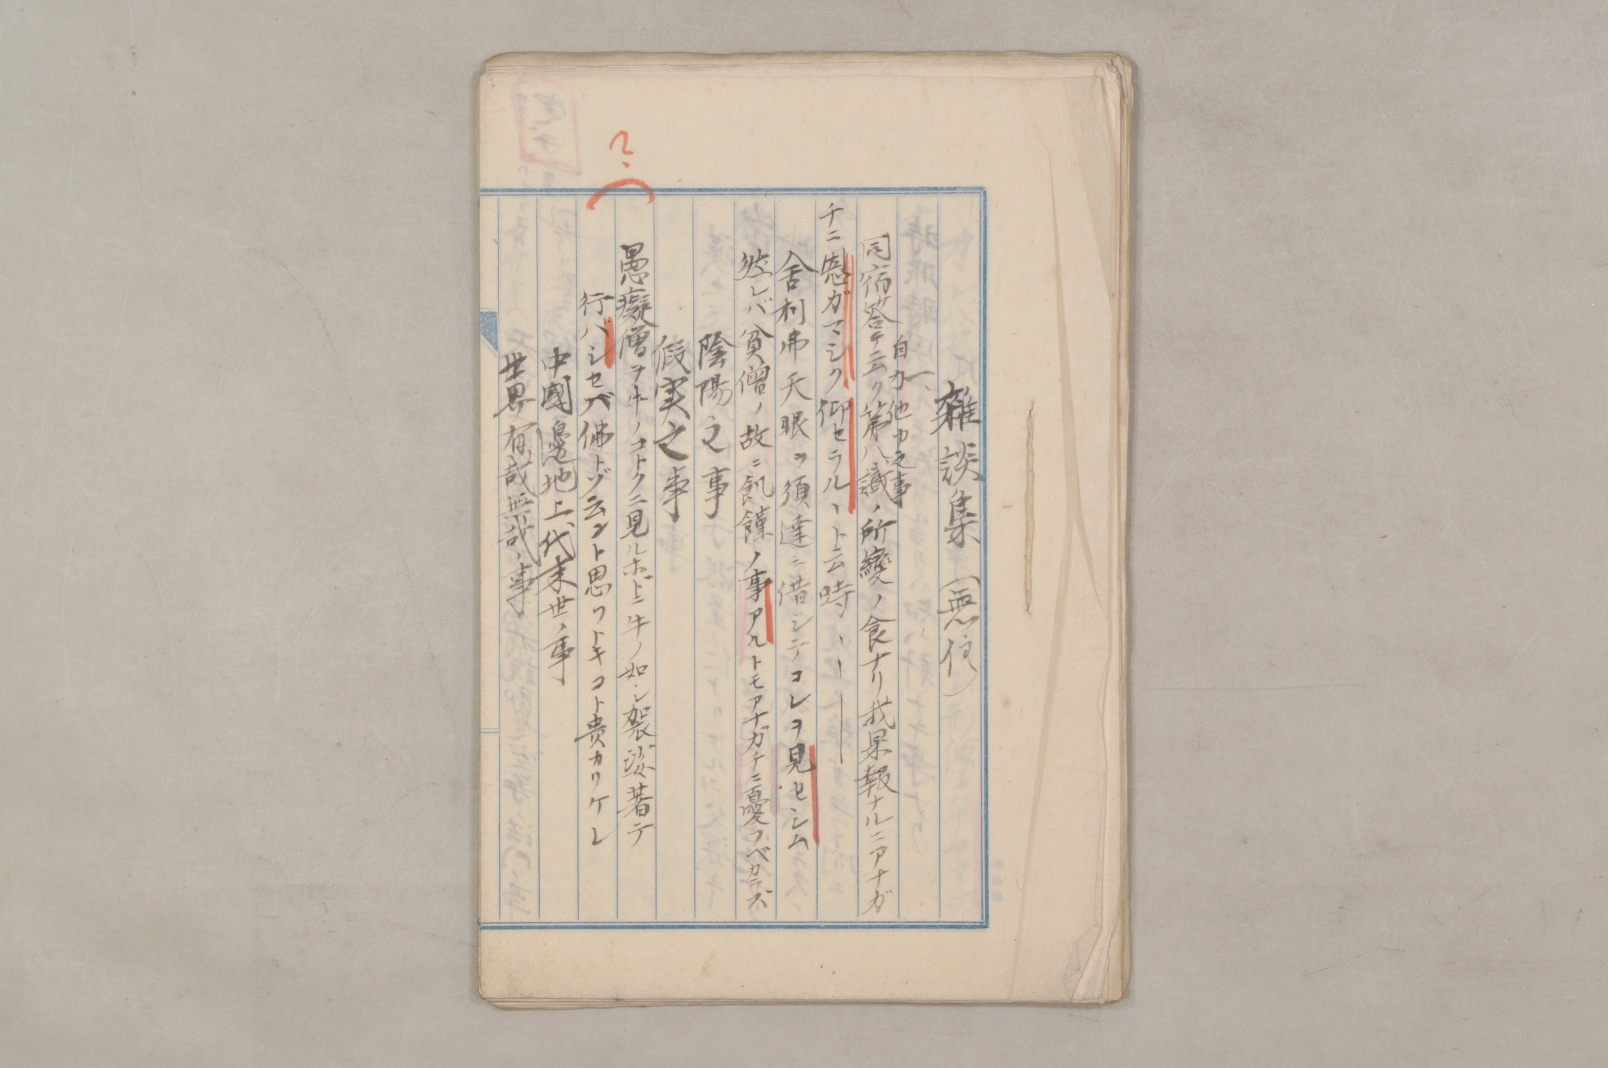 雜談集(無住)
自力他力之事
同宿答テ云ク第八識ノ所變ノ食ナリ我果報ナルニアナガ
チニ慇ガマシク仰セラルヽト云時
舍利弗天眼ヲ須達ニ借シテコレヲ見セシム
然レバ貧僧ノ故ニ飢饉ノ事アルトモアナガチニ憂フベカラズ
陰陽之事
假実之事
愚癡僧ヲ牛ノコトクニ見ルホドニ牛ノ如シ袈裟著テ
行ハシセバ佛トゾ云ント思フトキコト貴カリケレ
中國邊地上代末世ノ事
世界ノ有哉無哉ノ事